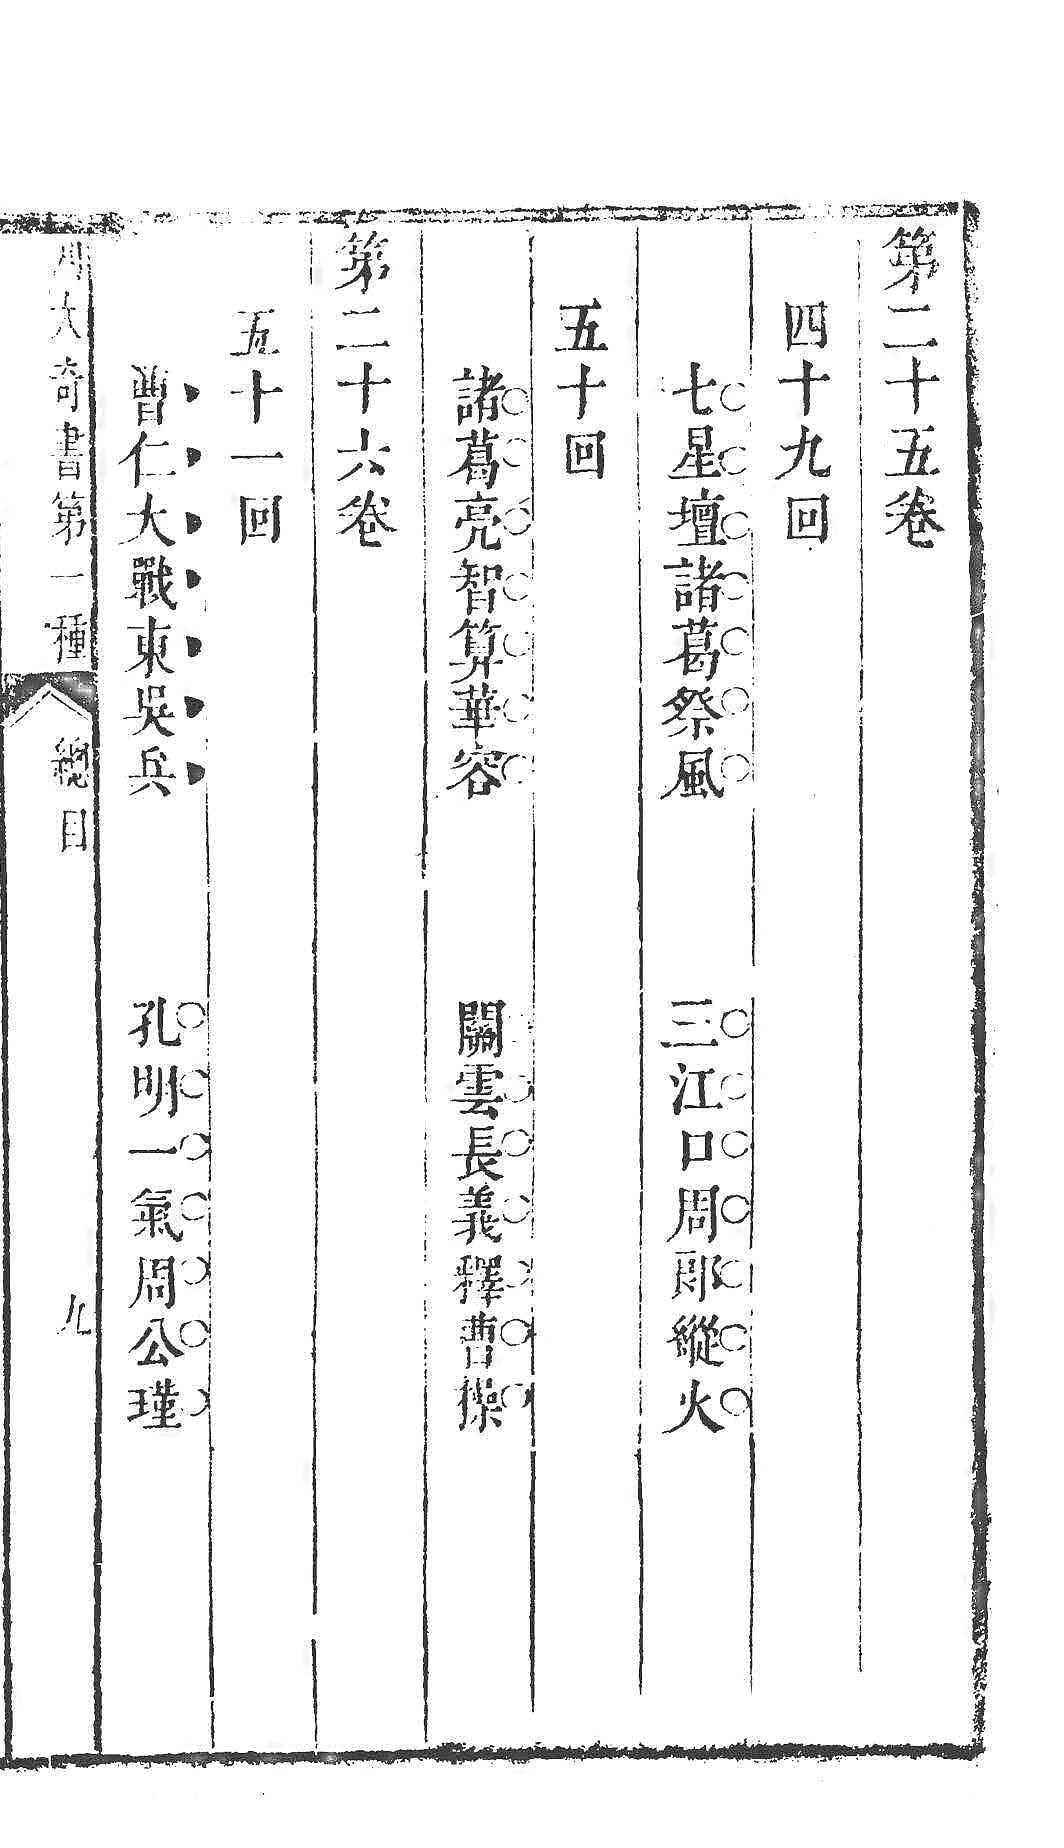 第二十五卷
四十九回
七星壇諸葛祭風　三江口周郎縱火
五十回
諸葛亮智算華容　關雲長義釋曹操
第二十六卷
五十一回
曹仁大戰東吳兵　孔明一氣周公瑾
大奇書第一種　總目　九